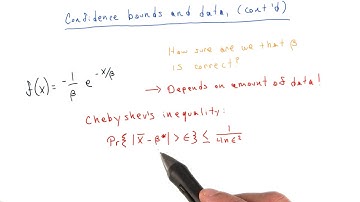 Confidence bounds and data, (cont'd)
How sure are we that β
is correct?
f(x) = -1/β e^(-x/β)
→ Depends on amount of data!
Chebyshev's inequality:
Pr{ |x̄ - β*| > ε } ≤ 1/(4nε²)